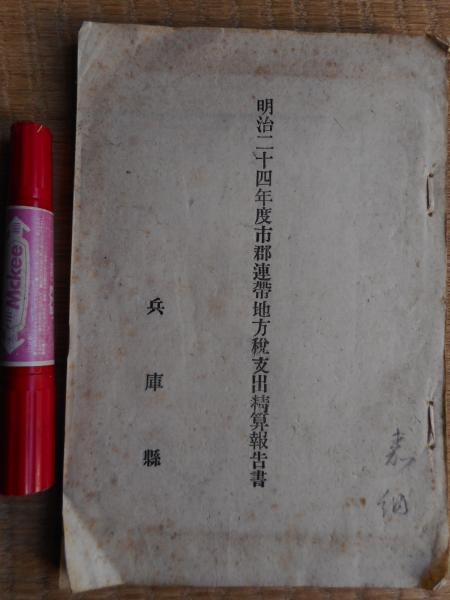 明治二十四年度市郡連帶地方稅支出精算報告書
兵庫縣
Mckee